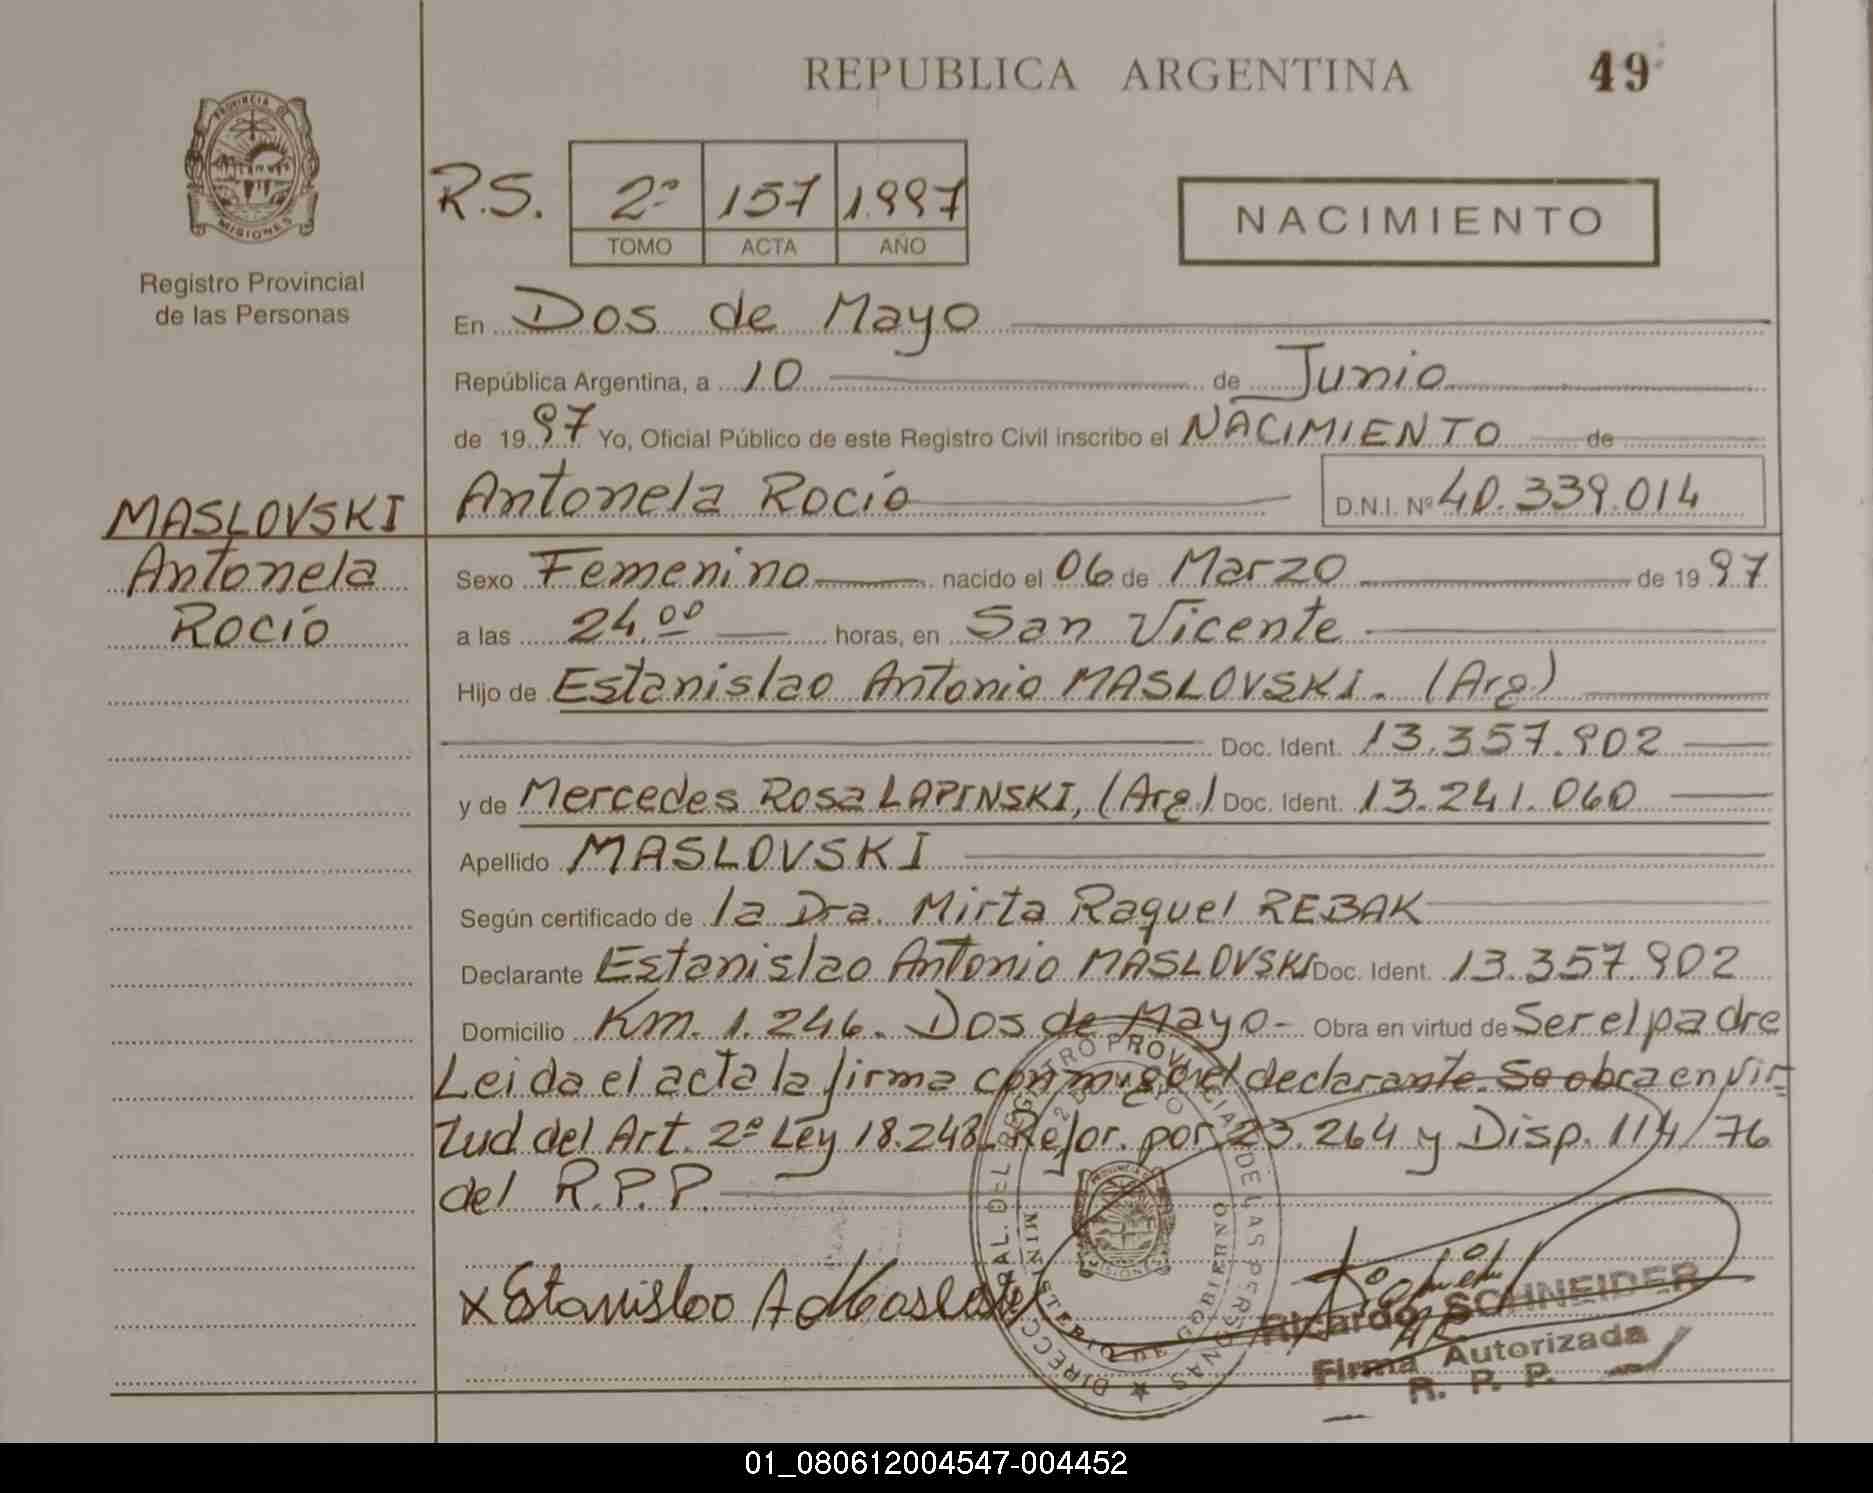 REPUBLICA ARGENTINA 49
PROVINCIA DE MISIONES
Registro Provincial
de las Personas
R.S. 2º 157 1.997
TOMO ACTA AÑO
NACIMIENTO
En Dos de Mayo
República Argentina, a 10 de Junio
de 1997 Yo, Oficial Público de este Registro Civil inscribo el NACIMIENTO de
Antonela Rocío D.N.I. Nº 40.339.014
MASLOVSKI
Antonela
Rocío
Sexo Femenino nacido el 06 de Marzo de 1997
a las 24.00 horas, en San Vicente
Hijo de Estanislao Antonio MASLOVSKI. (Arg)
Doc. Ident. 13.357.902
y de Mercedes Rosa LAPINSKI, (Arg.) Doc. Ident. 13.241.060
Apellido MASLOVSKI
Según certificado de la Dra. Mirta Raquel REBAK
Declarante Estanislao Antonio MASLOVSKI Doc. Ident. 13.357.902
Domicilio Km. 1.246. Dos de Mayo- Obra en virtud de Ser el padre
Leida el acta la firma conmigo el declarante. Se obra en vir-
tud del Art. 2º Ley 18.248- Refor. por 23.264 y Disp. 114/76
del R.P.P.
x Estanislao A
DIRECC AL. DEL REGISTRO PROVINCIAL DE LAS PERSONAS
MINISTERIO DE GOBIERNO
Ricardo SCHNEIDER
Firma Autorizada
R. P. P.
01_080612004547-004452